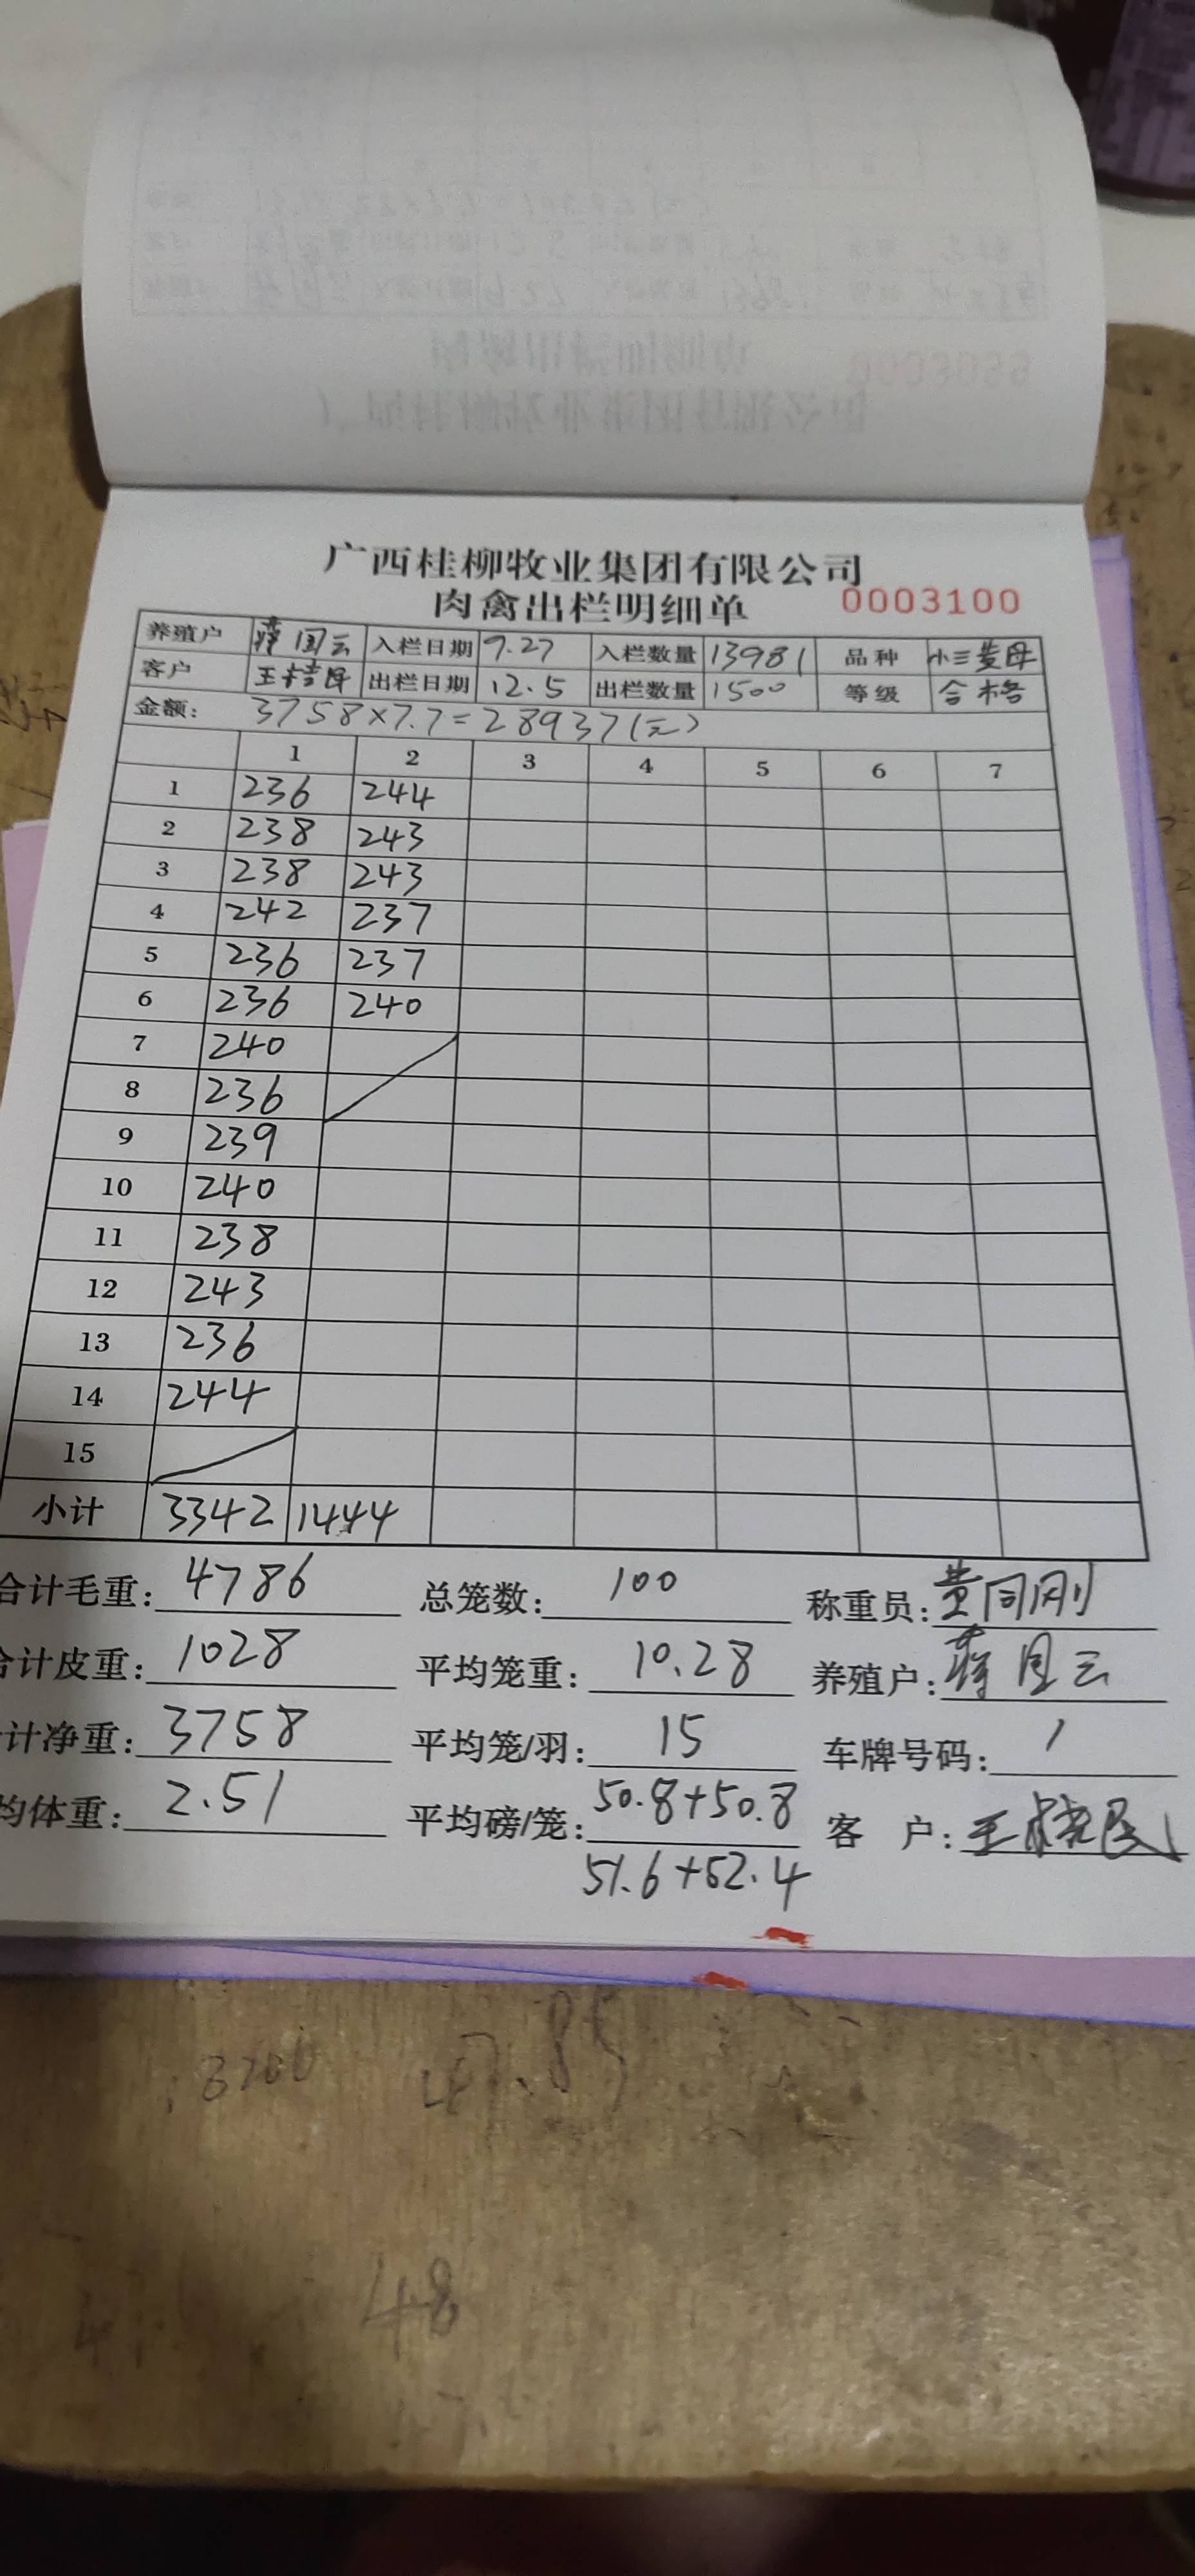 广西桂柳牧业集团有限公司
肉禽出栏明细单 0003100
养殖户 蒋国云 入栏日期 9.27 入栏数量 13981 品种 小三黄母
客户 出栏日期 12.5 出栏数量 1500 等级 合格
金额: 3758×7.7=28937(元)
1 2 3 4 5 6 7
1 236 244
2 238 243
3 238 243
4 242 237
5 236 237
6 236 240
7 240
8 236
9 239
10 240
11 238
12 243
13 236
14 244
15
小计 3342 1444
合计毛重: 4786 总笼数: 100 称重员: 黄同刚
合计皮重: 1028 平均笼重: 10.28 养殖户: 蒋国云
计净重: 3758 平均笼/羽: 15 车牌号码: /
均体重: 2.51 平均磅/笼: 50.8+50.8 客 户: 王晓民
51.6+52.4
3700
48